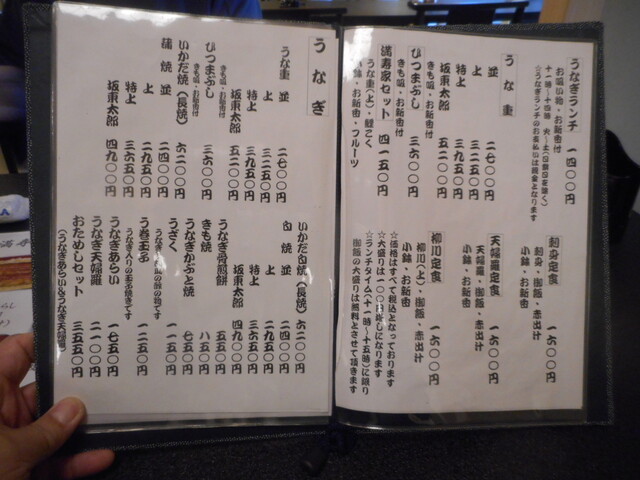 うなぎランチ 一四〇〇円
お吸い物・お新香付
十一時~十四時 火~土(日祭日を除く)
☆うなぎランチのお支払いは現金となります
うな重
並 二七〇〇円
上 三二五〇円
特上 三九五〇円
坂東太郎 五二〇〇円
きも吸・お新香付
ひつまぶし 三六〇〇円
きも吸・お新香付
満寿家セット 四一五〇円
うな重(上)・鯉こく
小鉢・お新香・フルーツ
刺身定食 一六〇〇円
刺身・御飯・赤出汁
小鉢・お新香
天婦羅定食 一六〇〇円
天婦羅・御飯・赤出汁
小鉢・お新香
柳川定食 一六〇〇円
柳川(上)・御飯・赤出汁
小鉢・お新香
☆価格はすべて税込となっております
☆大盛りは一〇〇円増しになります
☆ランチタイム(十一時~十五時)に限り
御飯の大盛りは無料とさせて頂きます
うなぎ
うな重 並 二七〇〇円
上 三二五〇円
特上 三九五〇円
坂東太郎 五二〇〇円
きも吸・お新香付
ひつまぶし 三六〇〇円
きも吸・お新香付
いかだ焼(長焼) 六二〇〇円
蒲焼 並 二四〇〇円
上 二九五〇円
特上 三六五〇円
坂東太郎 四九〇〇円
いかだ白焼(長焼) 六二〇〇円
白焼 並 二四〇〇円
上 二九五〇円
特上 三六五〇円
坂東太郎 四九〇〇円
うなぎ骨煎餅 五五〇円
きも焼 八五〇円
うなぎかぶと焼 七五〇円
うざく 一一五〇円
うなぎ入りの玉ふ焼きです
う巻玉ふ 一二五〇円
うなぎあらい 一七五〇円
うなぎ天婦羅 二一〇〇円
おためしセット 三五五〇円
(うなぎあらい&うなぎ天婦羅)